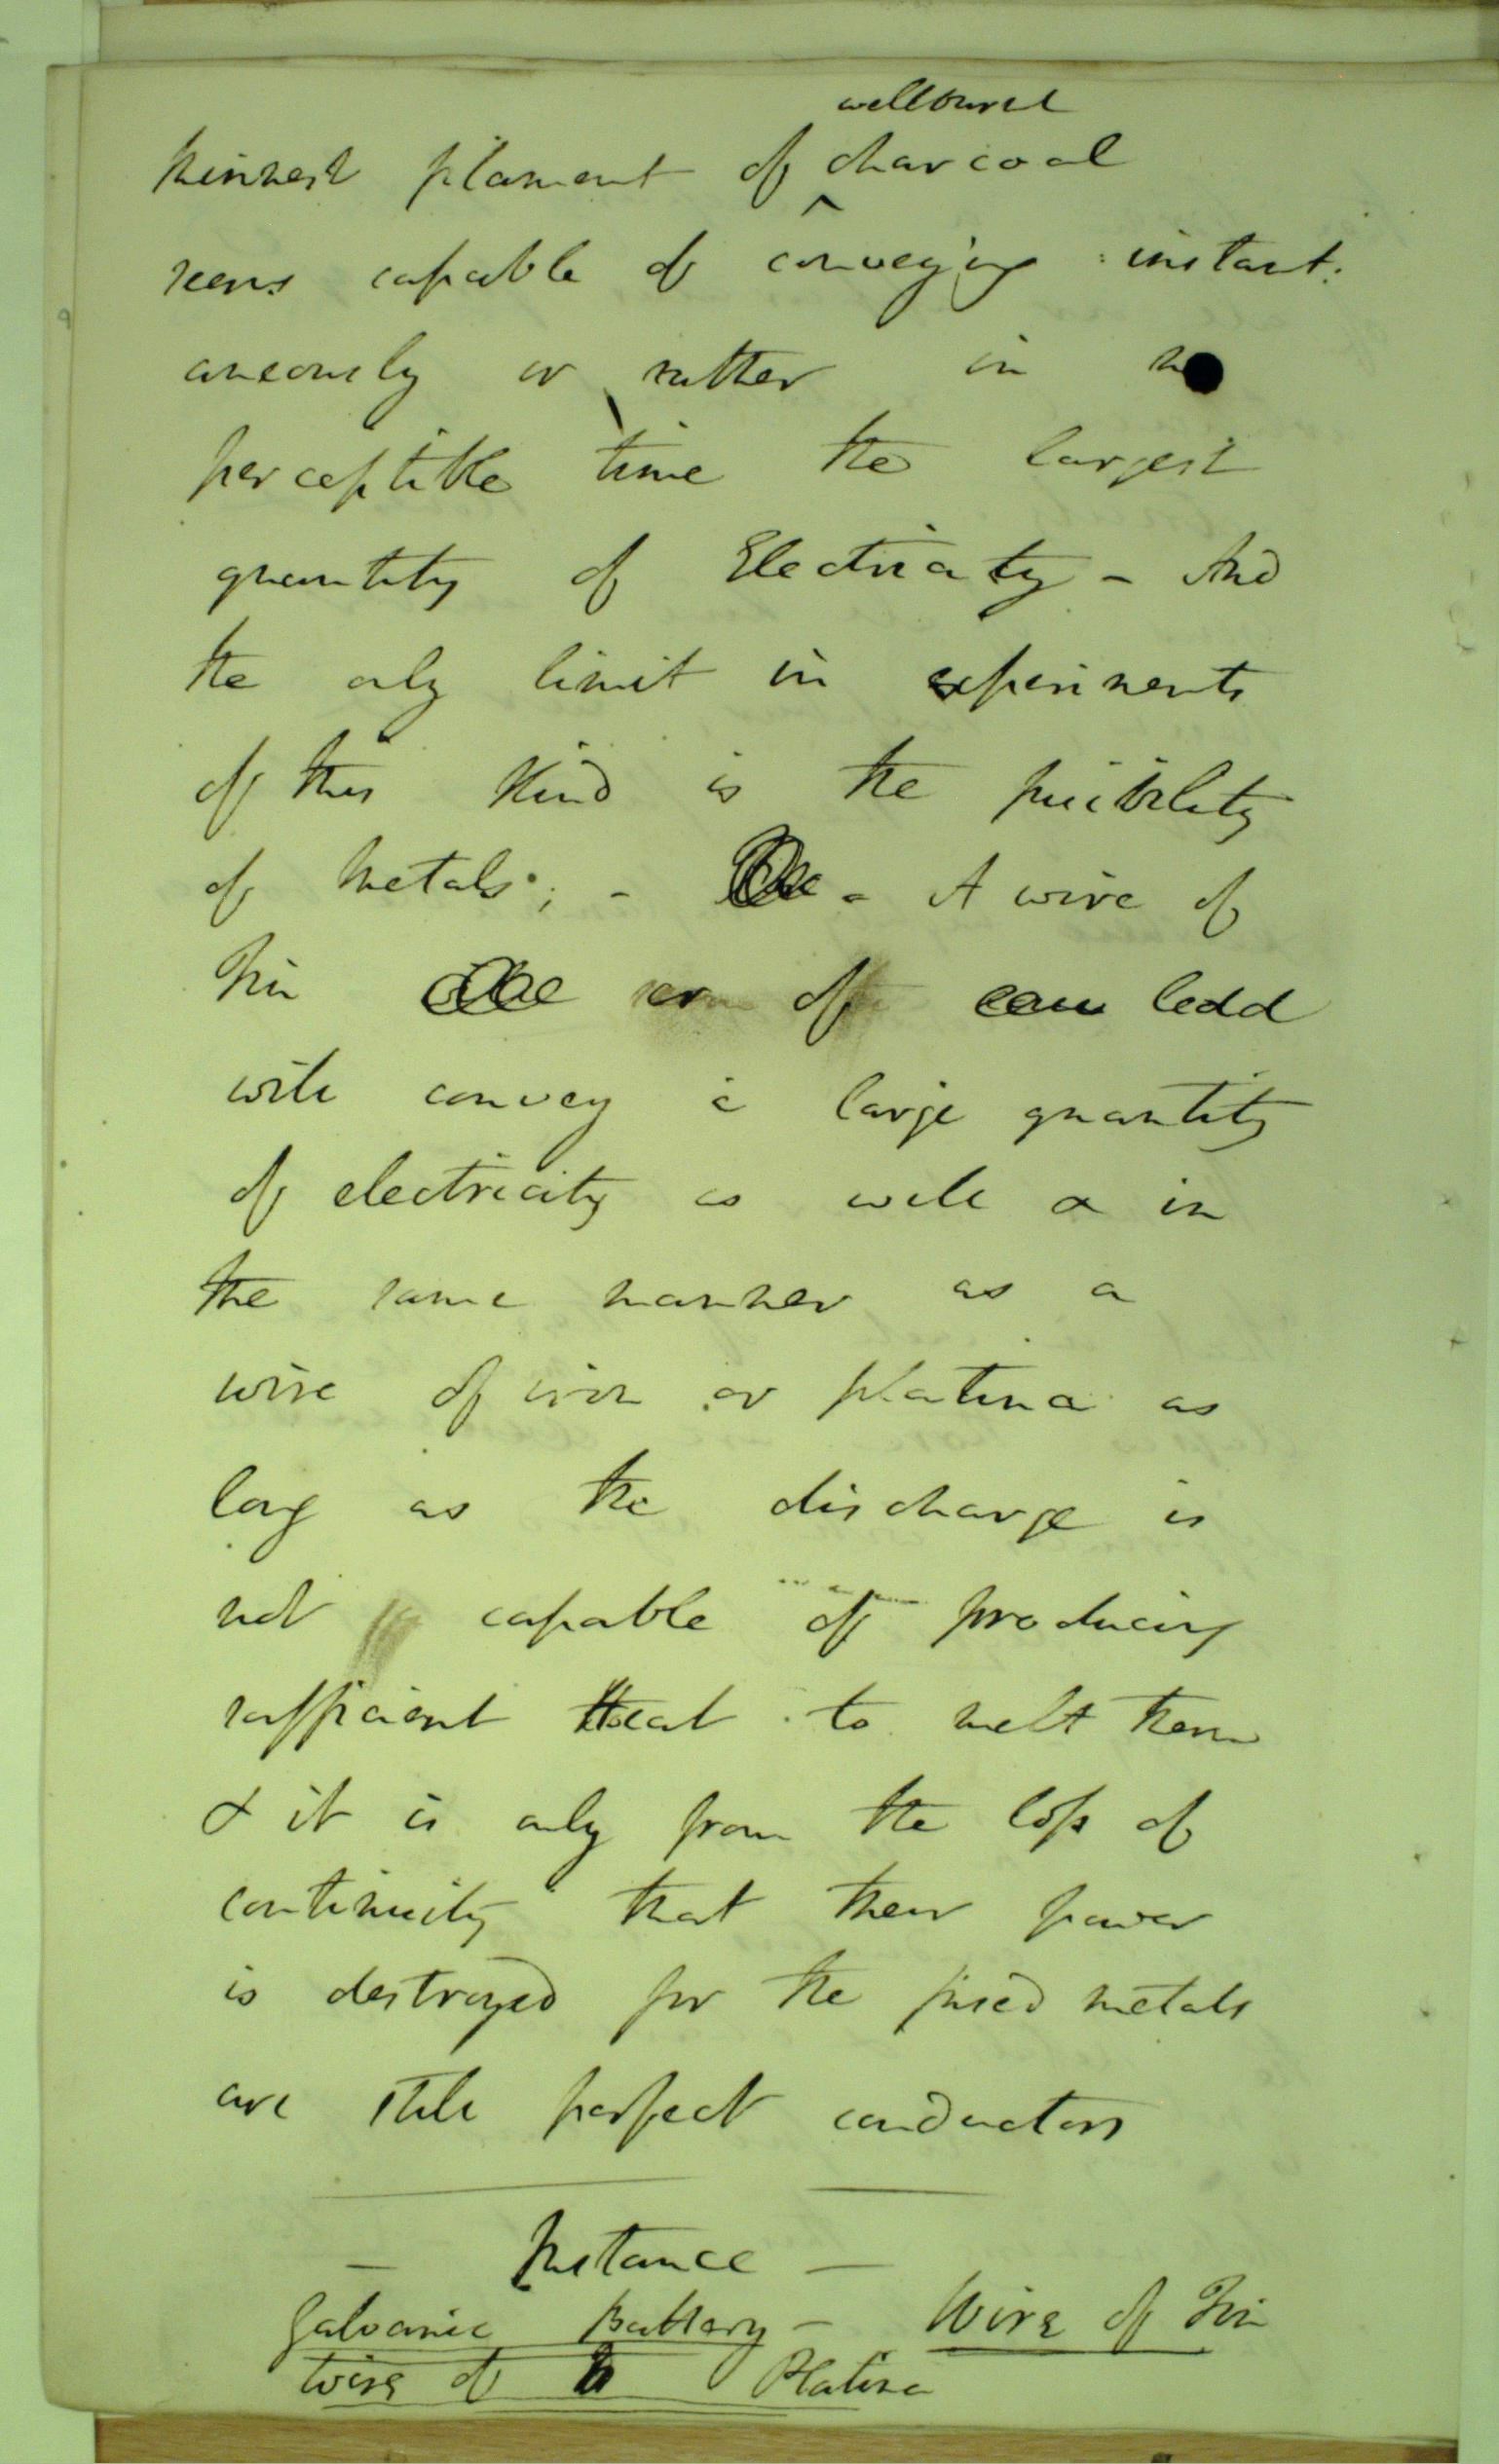 wellburnt
thinnest filament of ^ charcoal
seems capable of conveying instant:
aneously or rather in no
perceptible time the largest
quantity of Electricity - And
the only limit in experiments
of this Kind is the fusibility
of Metals; - - A wire of
Tin or of ledd
will convey a large quantity
of electricity as well & in
the same manner as a
wire of iron or platina as
long as the discharge is
not capable of producing
sufficient Heat to melt them
& it is only from the loss of
continuity that their power
is destroyed for the fused metals
are still perfect conductors
- Instance -
Galvanic Battery - Wire of Tin
Wire of Platina